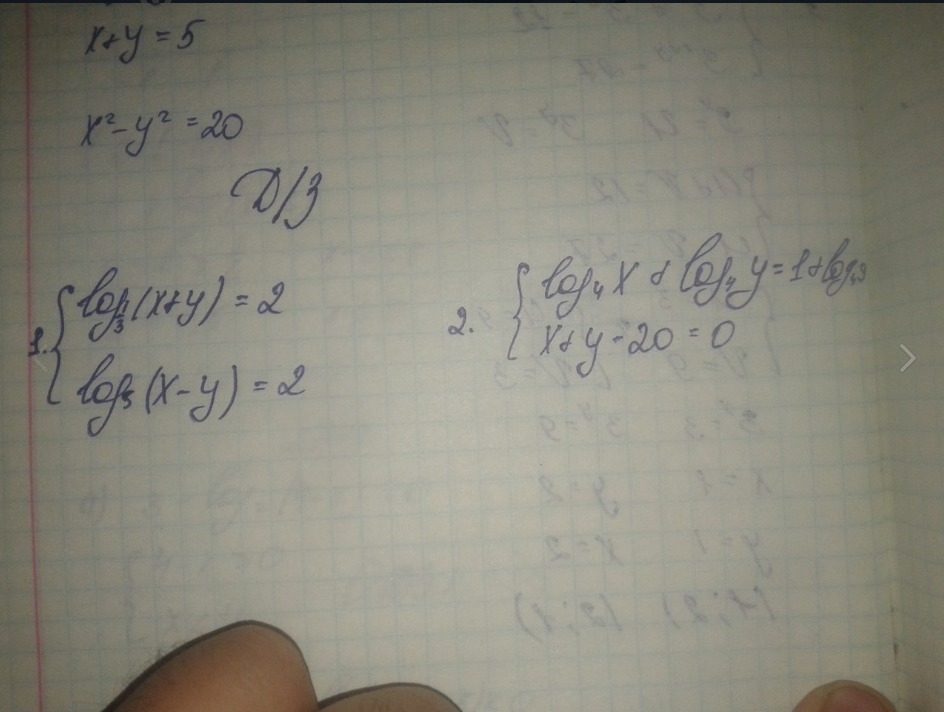 x+y=5
x²-y²=20
Д/З
1. { log₁/₃(x+y)=2
log₅(x-y)=2
2. { log₄x+log₄y=1+log₄9
x+y-20=0